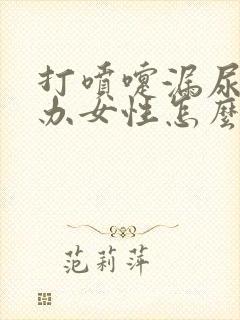 打噴嚏漏尿
办女性怎麼
范莉萍